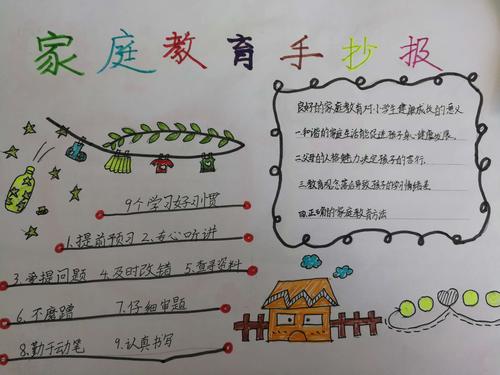 家庭教育手抄报
良好的家庭教育对小学生健康成长的意义
一.和谐的家庭生活能促进孩子身心健康发展.
二.父母的人格魅力决定孩子的言行.
三.教育观念落后导致孩子的学习情绪差
四.正确的家庭教育方法
9个学习好习惯
1.提前预习 2.专心听讲
3.爱提问题 4.及时改错 5.查寻资料
6.不磨蹭 7.仔细审题
8.勤于动笔 9.认真书写